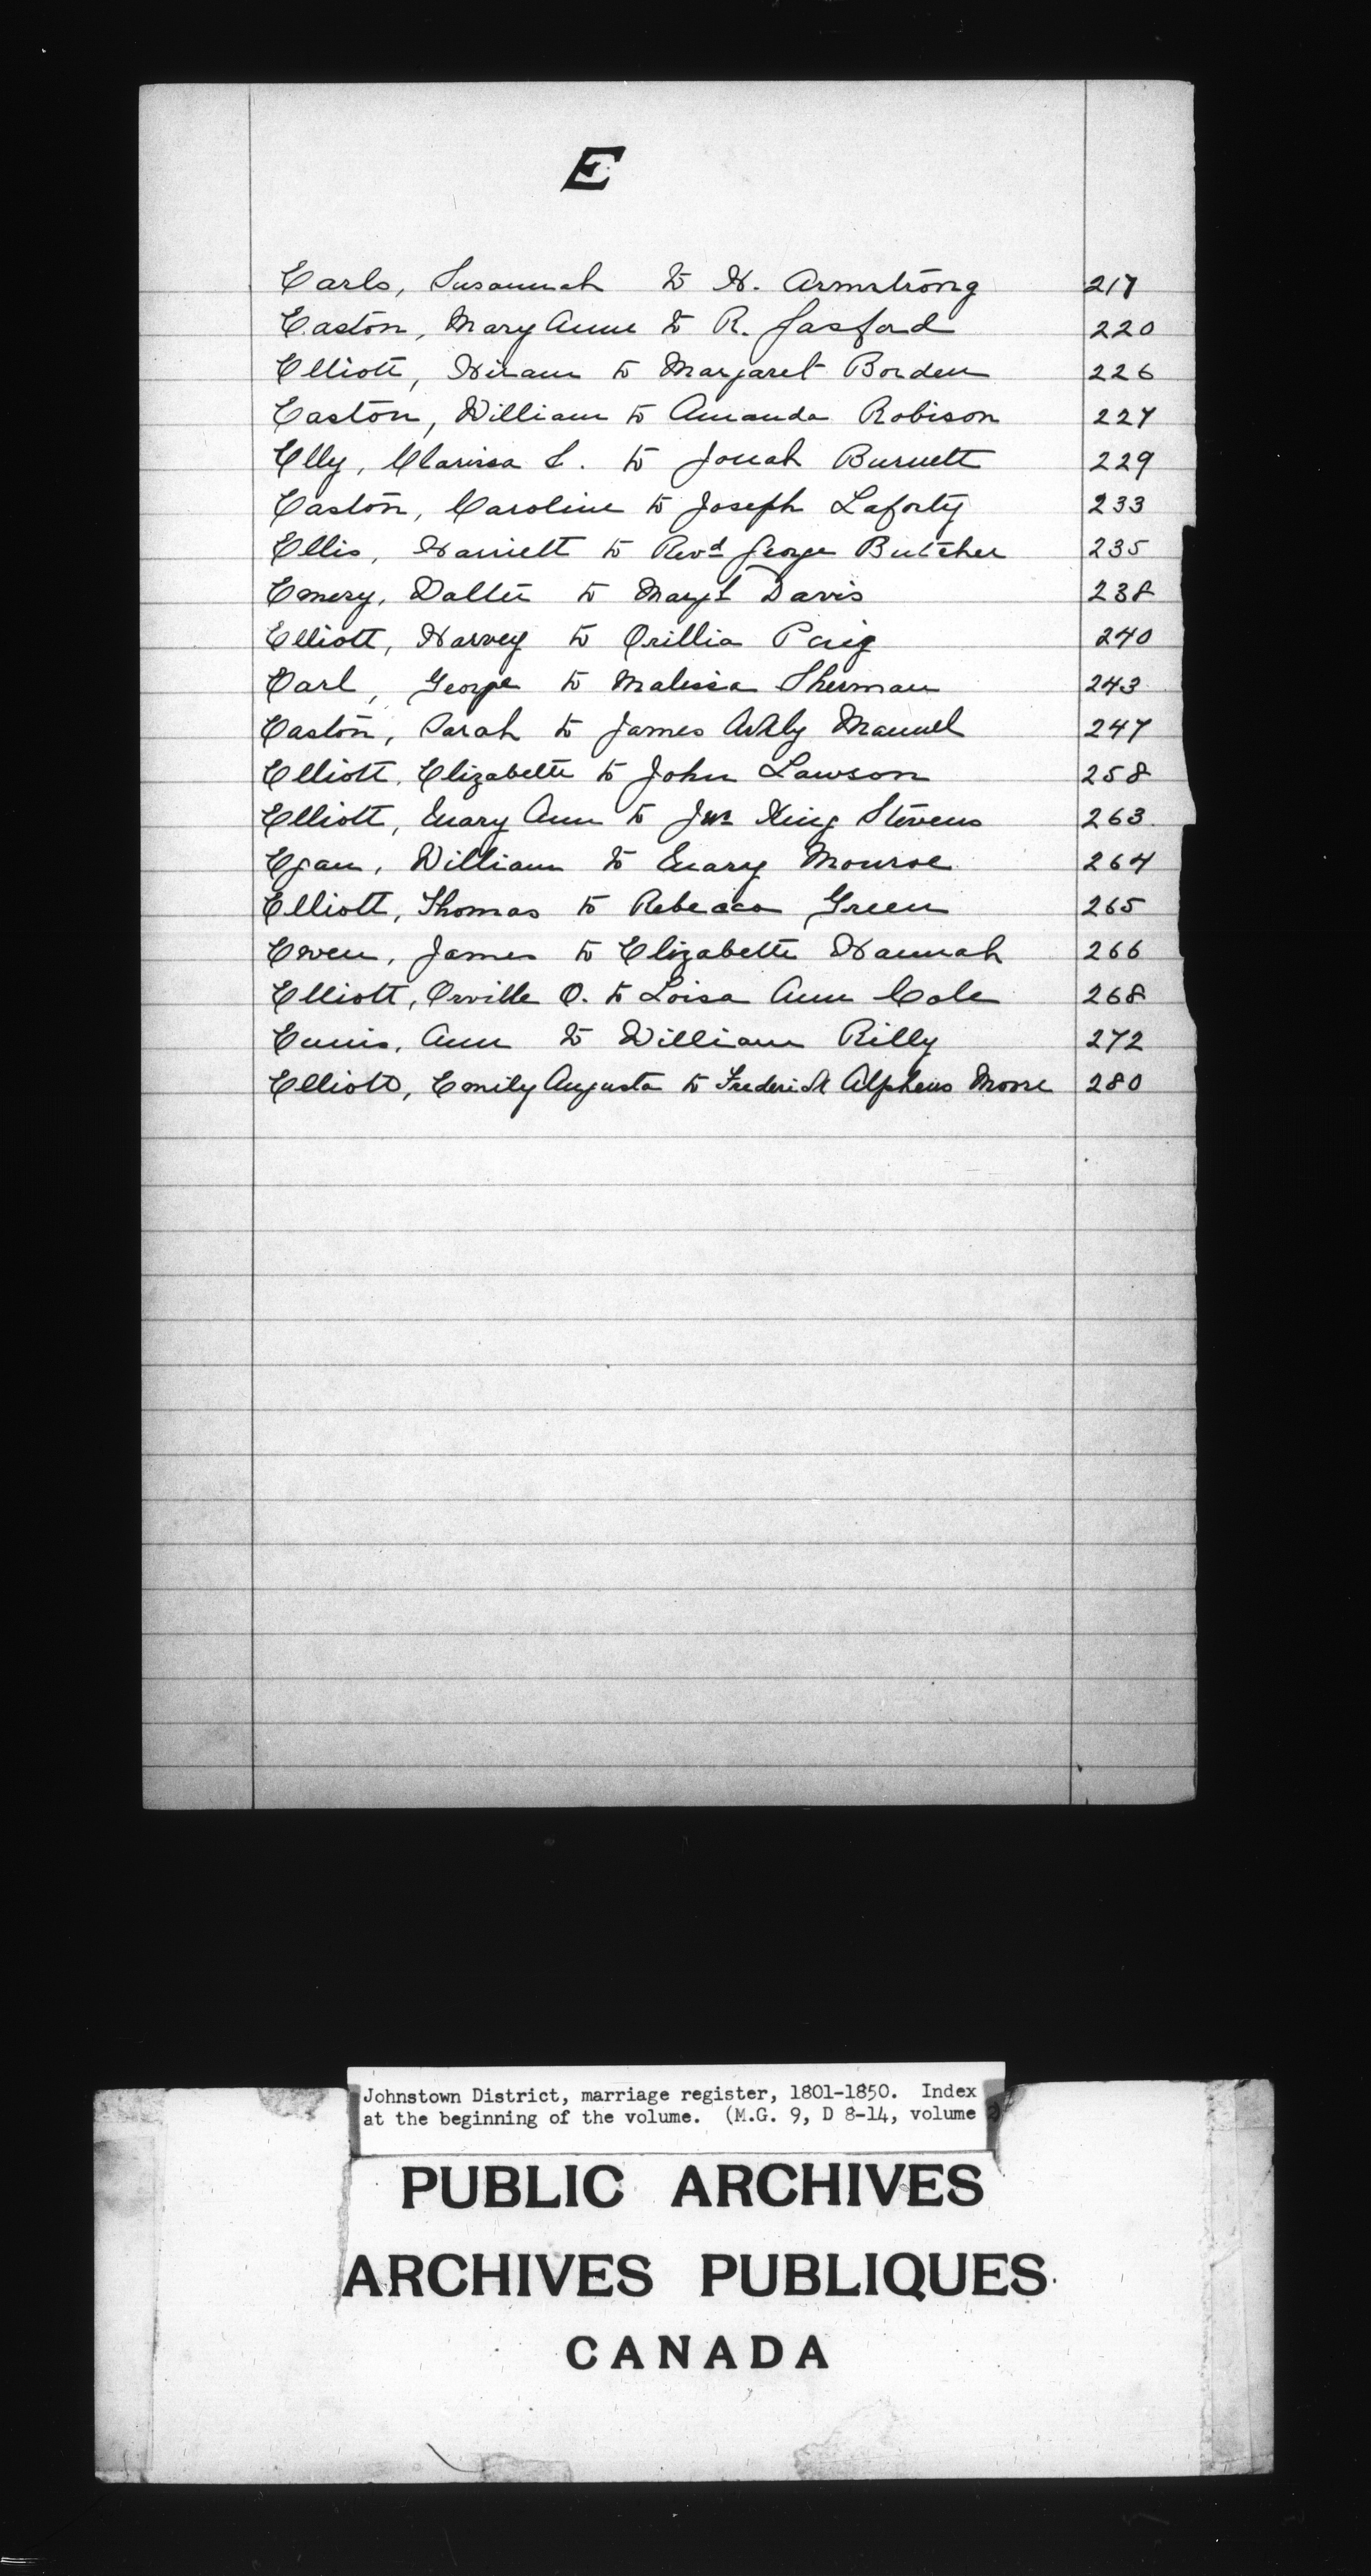 E
Earls, Susannah to H. Armstrong 217
Easton, Mary Anne to R. Gasford 220
Elliott, Hiram to Margaret Borden 226
Easton, William to Amanda Robison 227
Elly, Clarissa L. to Jonah Burnett 229
Easton, Caroline to Joseph Laforty 233
Ellis, Harriett to Revd George Butcher 235
Emery, Walter to Margt Davis 238
Elliott, Harvey to Orillia 240
Earl, George to Malissa Sherman 243
Easton, Sarah to James Manuel 247
Elliott, Elizabeth to John Lawson 258
Elliott, Mary Ann to Jno King Stevens 263
Egan, William to Mary Monroe 264
Elliott, Thomas to Rebecca Green 265
Ewen, James to Elizabeth Hannah 266
Elliott, Orville O. to Loisa Ann Cole 268
Ennis, Ann to William Rilly 272
Elliott, Emily Augusta to Frederick Alpheus Moore 280
Johnstown District, marriage register, 1801-1850. Index
at the beginning of the volume. (M.G. 9, D 8-14, volume
PUBLIC ARCHIVES
ARCHIVES PUBLIQUES
CANADA